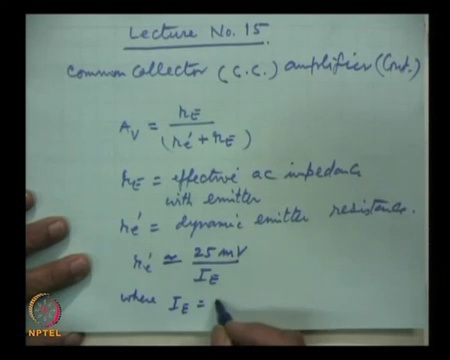 Lecture No. 15.
Common Collector (C.C.) amplifier (Cont.)
A_V = r_E / (r_e' + r_E)
r_E = effective ac impedance
with emitter
r_e' = dynamic emitter resistance.
r_e' ≃ 25 mV / I_E
where I_E =
NPTEL